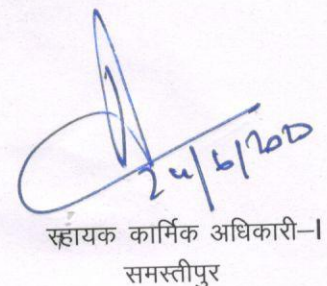 24/6/2020
सहायक कार्मिक अधिकारी–I
समस्तीपुर